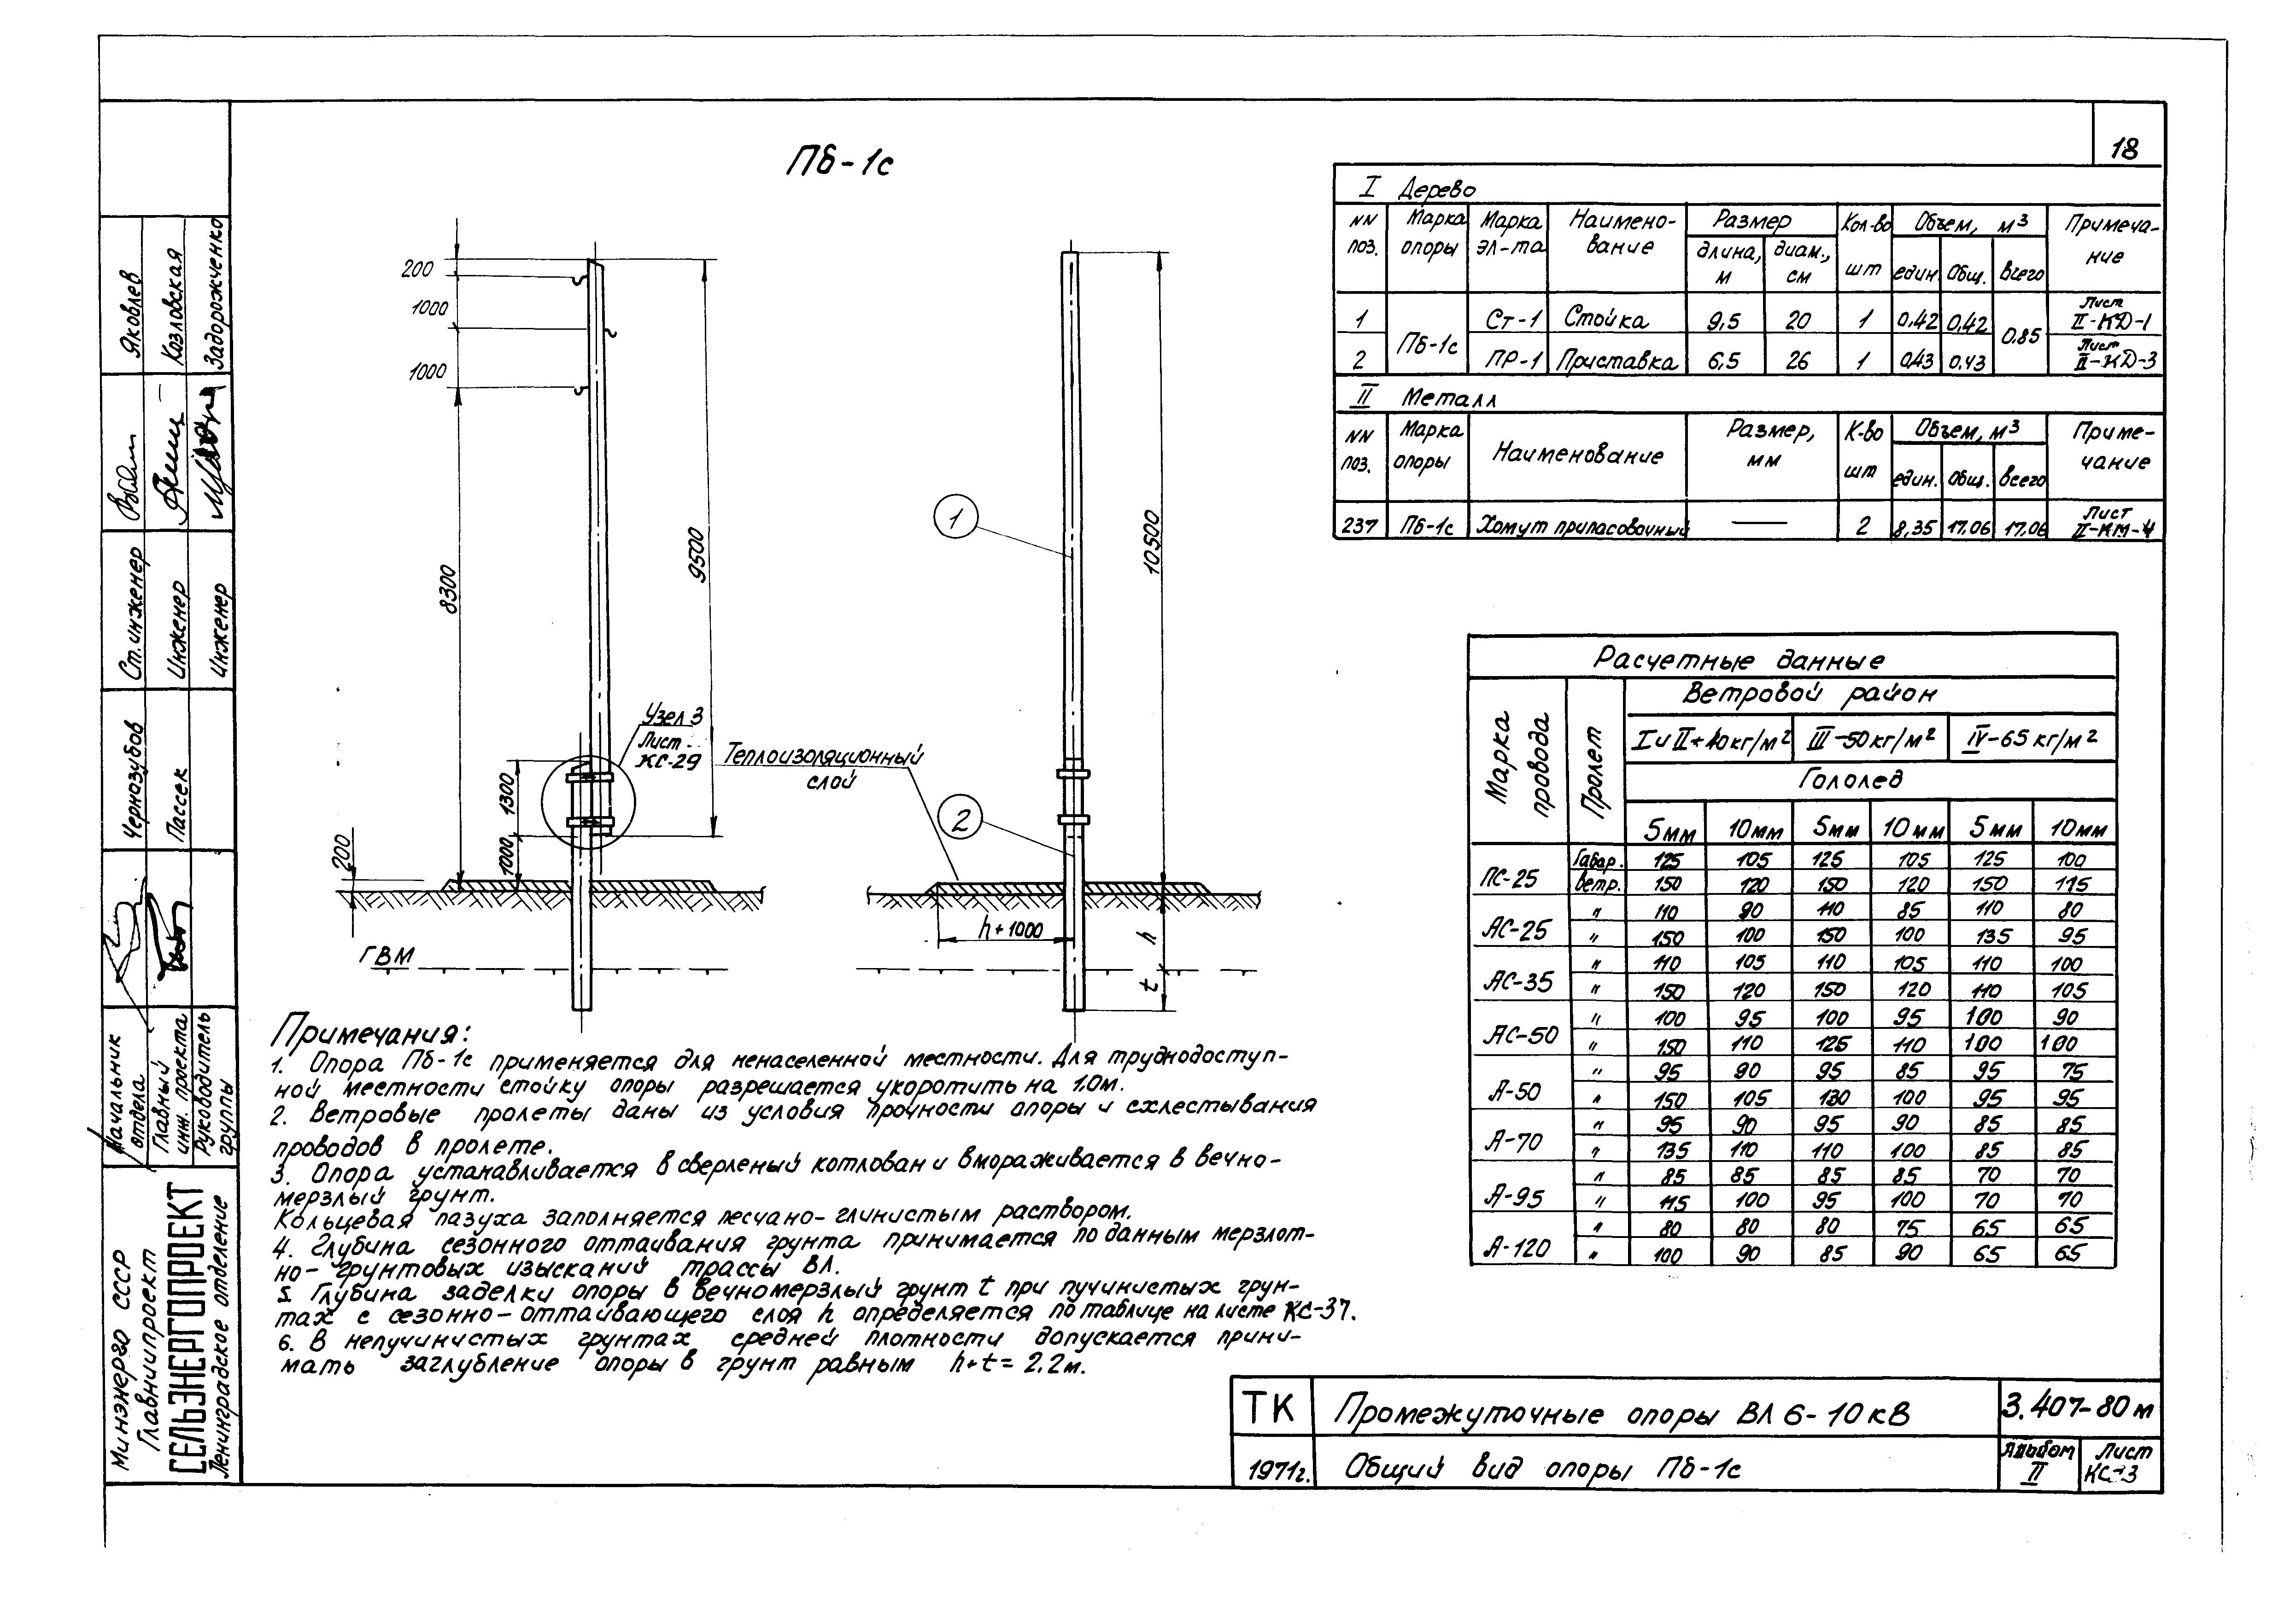 18
Пб-1с
200
1000
1000
8300
9500
10500
1300
1000
200
Узел 3
Лист
КС-29
Теплоизоляционный
слой
1
2
h+1000
h
t
ГВМ
I Дерево
NN поз. Марка опоры Марка эл-та Наименование Размер Кол-во шт Объем, м³ Примечание
длина, м диам., см един. Общ. Всего
1 Пб-1с Ст-1 Стойка 9,5 20 1 0,42 0,42 0,85 Лист II-КД-1
2 ПР-1 Приставка 6,5 26 1 0,43 0,43 Лист II-КД-3
II Металл
NN поз. Марка опоры Наименование Размер, мм К-во шт Объем, м³ Примечание
един. Общ. Всего
237 Пб-1с Хомут припасовочный — 2 8,35 17,06 17,06 Лист II-КМ-4
Расчетные данные
Марка провода Пролет Ветровой район
I и II÷40кг/м² III-50кг/м² IV-65 кг/м²
Гололед
5мм 10мм 5мм 10мм 5мм 10мм
ПС-25 Габар. 125 105 125 105 125 100
Ветр. 150 120 150 120 150 115
АС-25 " 110 90 110 85 110 80
" 150 100 150 100 135 95
АС-35 " 110 105 110 105 110 100
" 150 120 150 120 110 105
АС-50 " 100 95 100 95 100 90
" 150 110 125 110 100 100
А-50 " 95 90 95 85 95 75
" 150 105 130 100 95 95
А-70 " 95 90 95 90 85 85
" 135 110 110 100 85 85
А-95 " 85 85 85 85 70 70
" 115 100 95 100 70 70
А-120 " 80 80 80 75 65 65
" 100 90 85 90 65 65
Примечания:
1. Опора Пб-1с применяется для ненаселенной местности. Для труднодоступ-
ной местности стойку опоры разрешается укоротить на 1,0м.
2. Ветровые пролеты даны из условия прочности опоры и схлестывания
проводов в пролете.
3. Опора устанавливается в сверленый котлован и вмораживается в вечно-
мерзлый грунт.
Кольцевая пазуха заполняется песчано-глинистым раствором.
4. Глубина сезонного оттаивания грунта принимается по данным мерзлот-
но-грунтовых изысканий трассы ВЛ.
5. Глубина заделки опоры в вечномерзлый грунт t при пучинистых грун-
тах с сезонно-оттаивающего слоя h определяется по таблице на листе КС-37.
6. В непучинистых грунтах средней плотности допускается прини-
мать заглубление опоры в грунт равным h+t=2,2м.
ТК Промежуточные опоры ВЛ 6-10кВ 3.407-80м
1971г. Общий вид опоры Пб-1с Альбом II Лист КС-3
Яковлев
Козловская
Задорожченко
Ст. инженер
Инженер
Инженер
Чернозубов
Пассек
Начальник отдела
Главный инж. проекта
Руководитель группы
Минэнерго СССР
Главниипроект
СЕЛЬЭНЕРГОПРОЕКТ
Ленинградское отделение